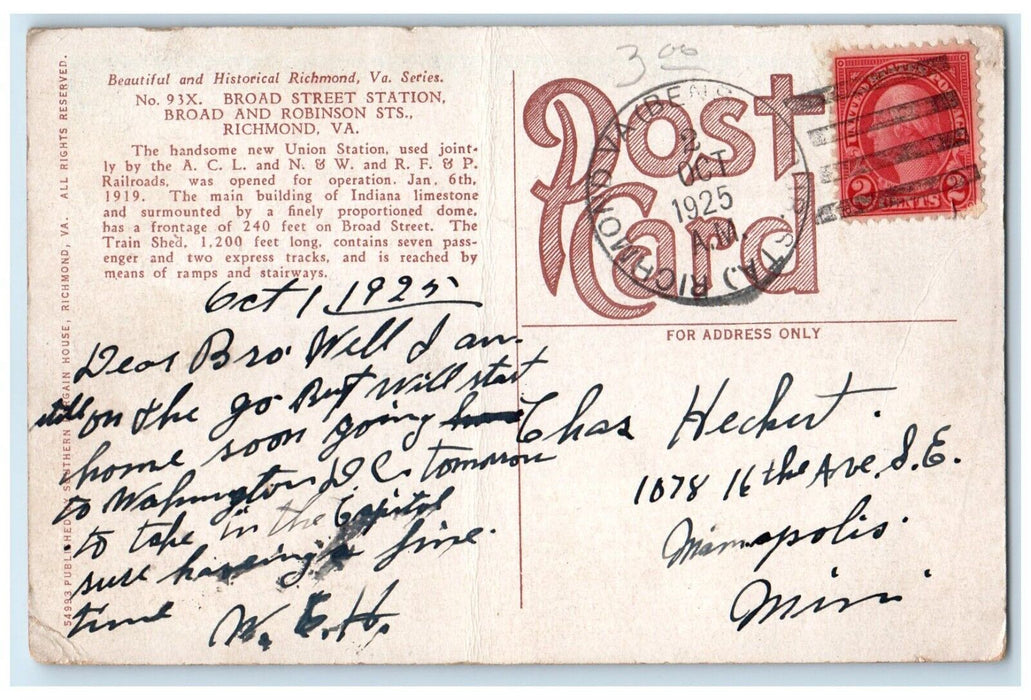 Beautiful and Historical Richmond, Va. Series.
No. 93X. BROAD STREET STATION,
BROAD AND ROBINSON STS.,
RICHMOND, VA.
The handsome new Union Station, used joint-
ly by the A. C. L. and N. & W. and R. F. & P.
Railroads, was opened for operation. Jan. 6th,
1919. The main building of Indiana limestone
and surmounted by a finely proportioned dome,
has a frontage of 240 feet on Broad Street. The
Train Shed, 1,200 feet long, contains seven pass-
enger and two express tracks, and is reached by
means of ramps and stairways.
54993 PUBLISHED BY SOUTHERN BARGAIN HOUSE, RICHMOND, VA. ALL RIGHTS RESERVED.
Oct 1 1925
Dear Bro Well I am
still on the go But will start
home soon going home
to Wahington D.C. tomorrow
to take in the Capitol
sure having a fine
time
W. E. H.
3 00
Post
Card
RICHMOND, VA. STA.)
2
OCT
1925
A.M.
UNITED STATES POSTAGE
2 CENTS 2
FOR ADDRESS ONLY
Chas Heckert.
1078 16 the Ave, S.E.
Minnapolis
Minn